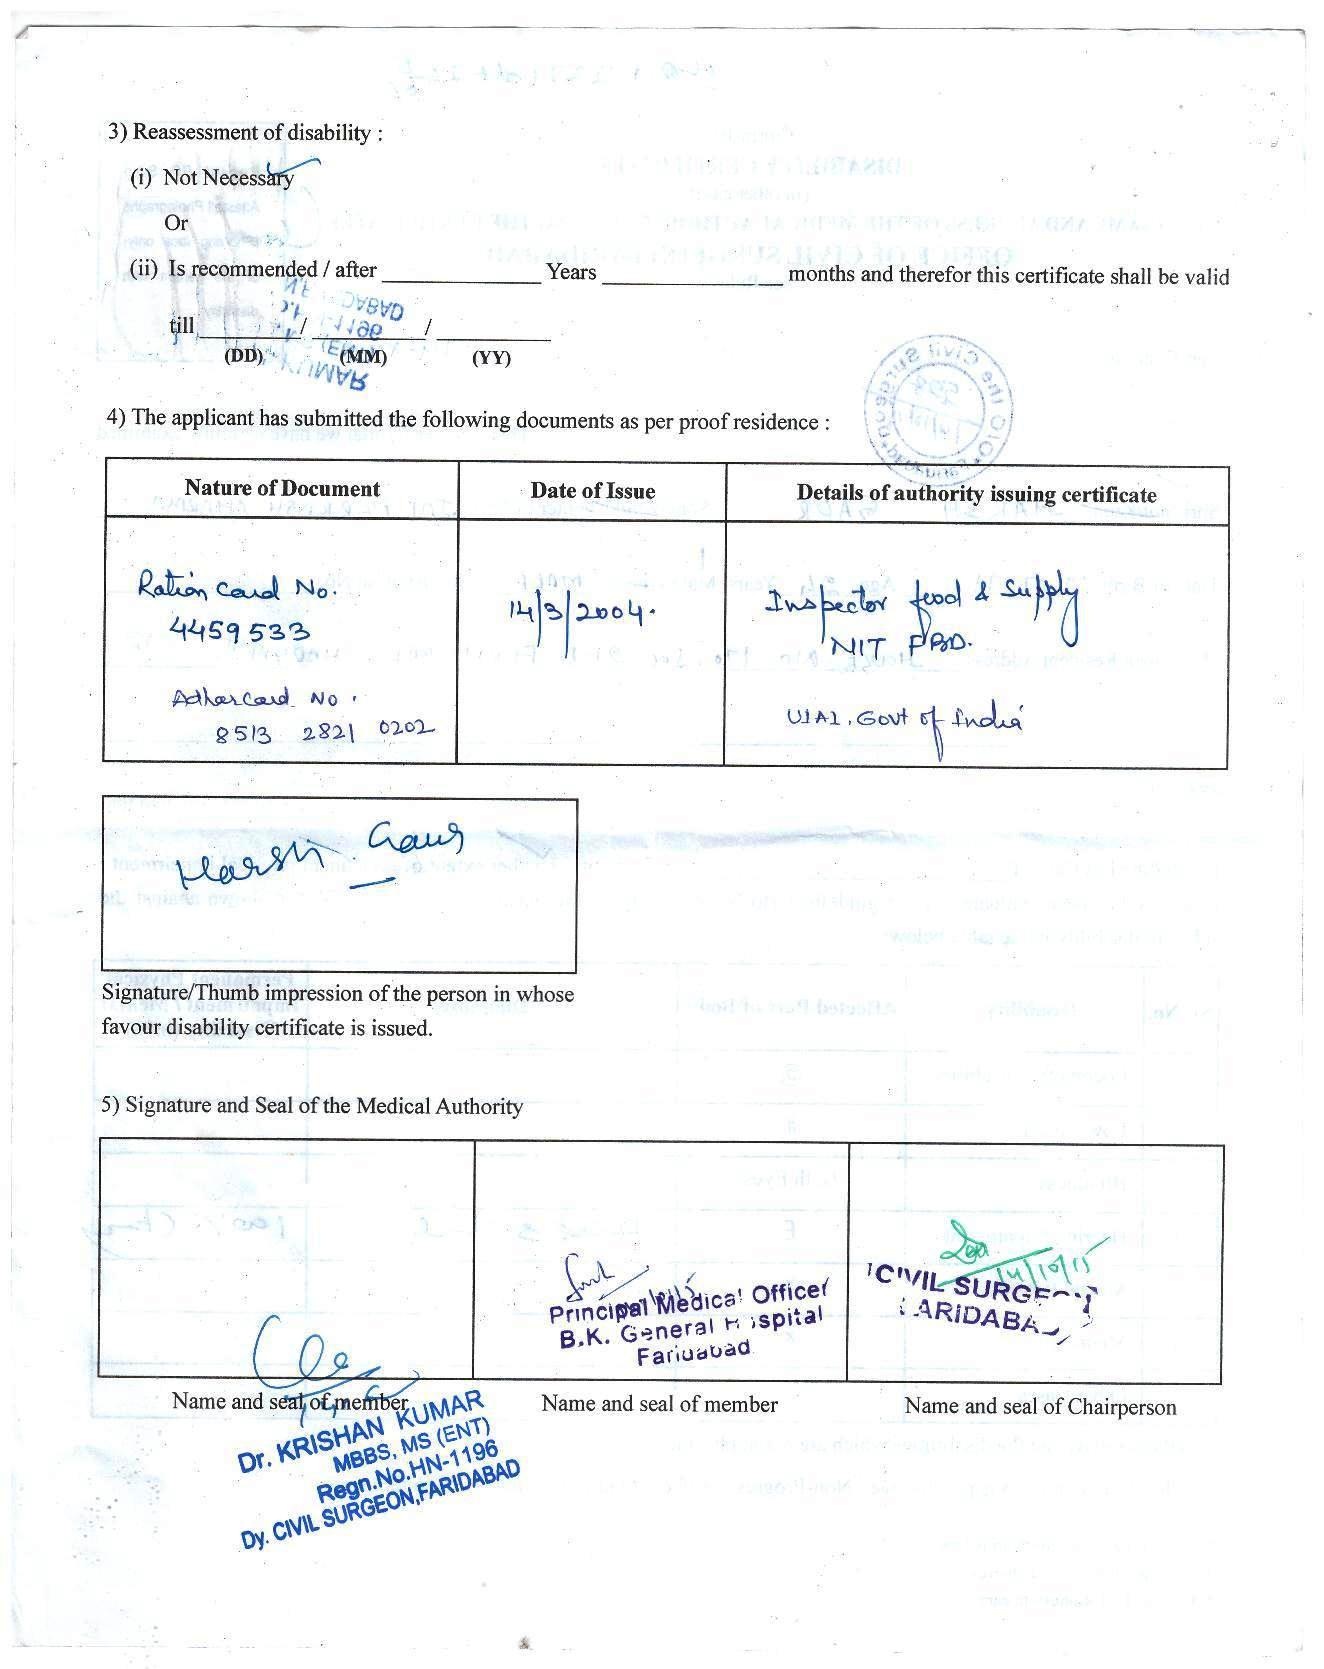 3) Reassessment of disability :
(i) Not Necessary
Or
(ii) Is recommended / after ______ Years ______ months and therefor this certificate shall be valid
till ______ / ______ / ______
(DD) (MM) (YY)
4) The applicant has submitted the following documents as per proof residence :
Nature of Document Date of Issue Details of authority issuing certificate
Ration Card No. 14/3/2004. Inspector food & Supply
4459533 NIT FBD.
Adhar Card No.
8513 2821 0202 UIAI, Govt of India
Harsh Gaur
Signature/Thumb impression of the person in whose
favour disability certificate is issued.
5) Signature and Seal of the Medical Authority
14/10/15
Principal Medical Officer
B.K. General Hospital
Faridabad
CIVIL SURGEON
FARIDABAD
Name and seal of member Name and seal of member Name and seal of Chairperson
Dr. KRISHAN KUMAR
MBBS, MS (ENT)
Regn.No.HN-1196
Dy. CIVIL SURGEON,FARIDABAD